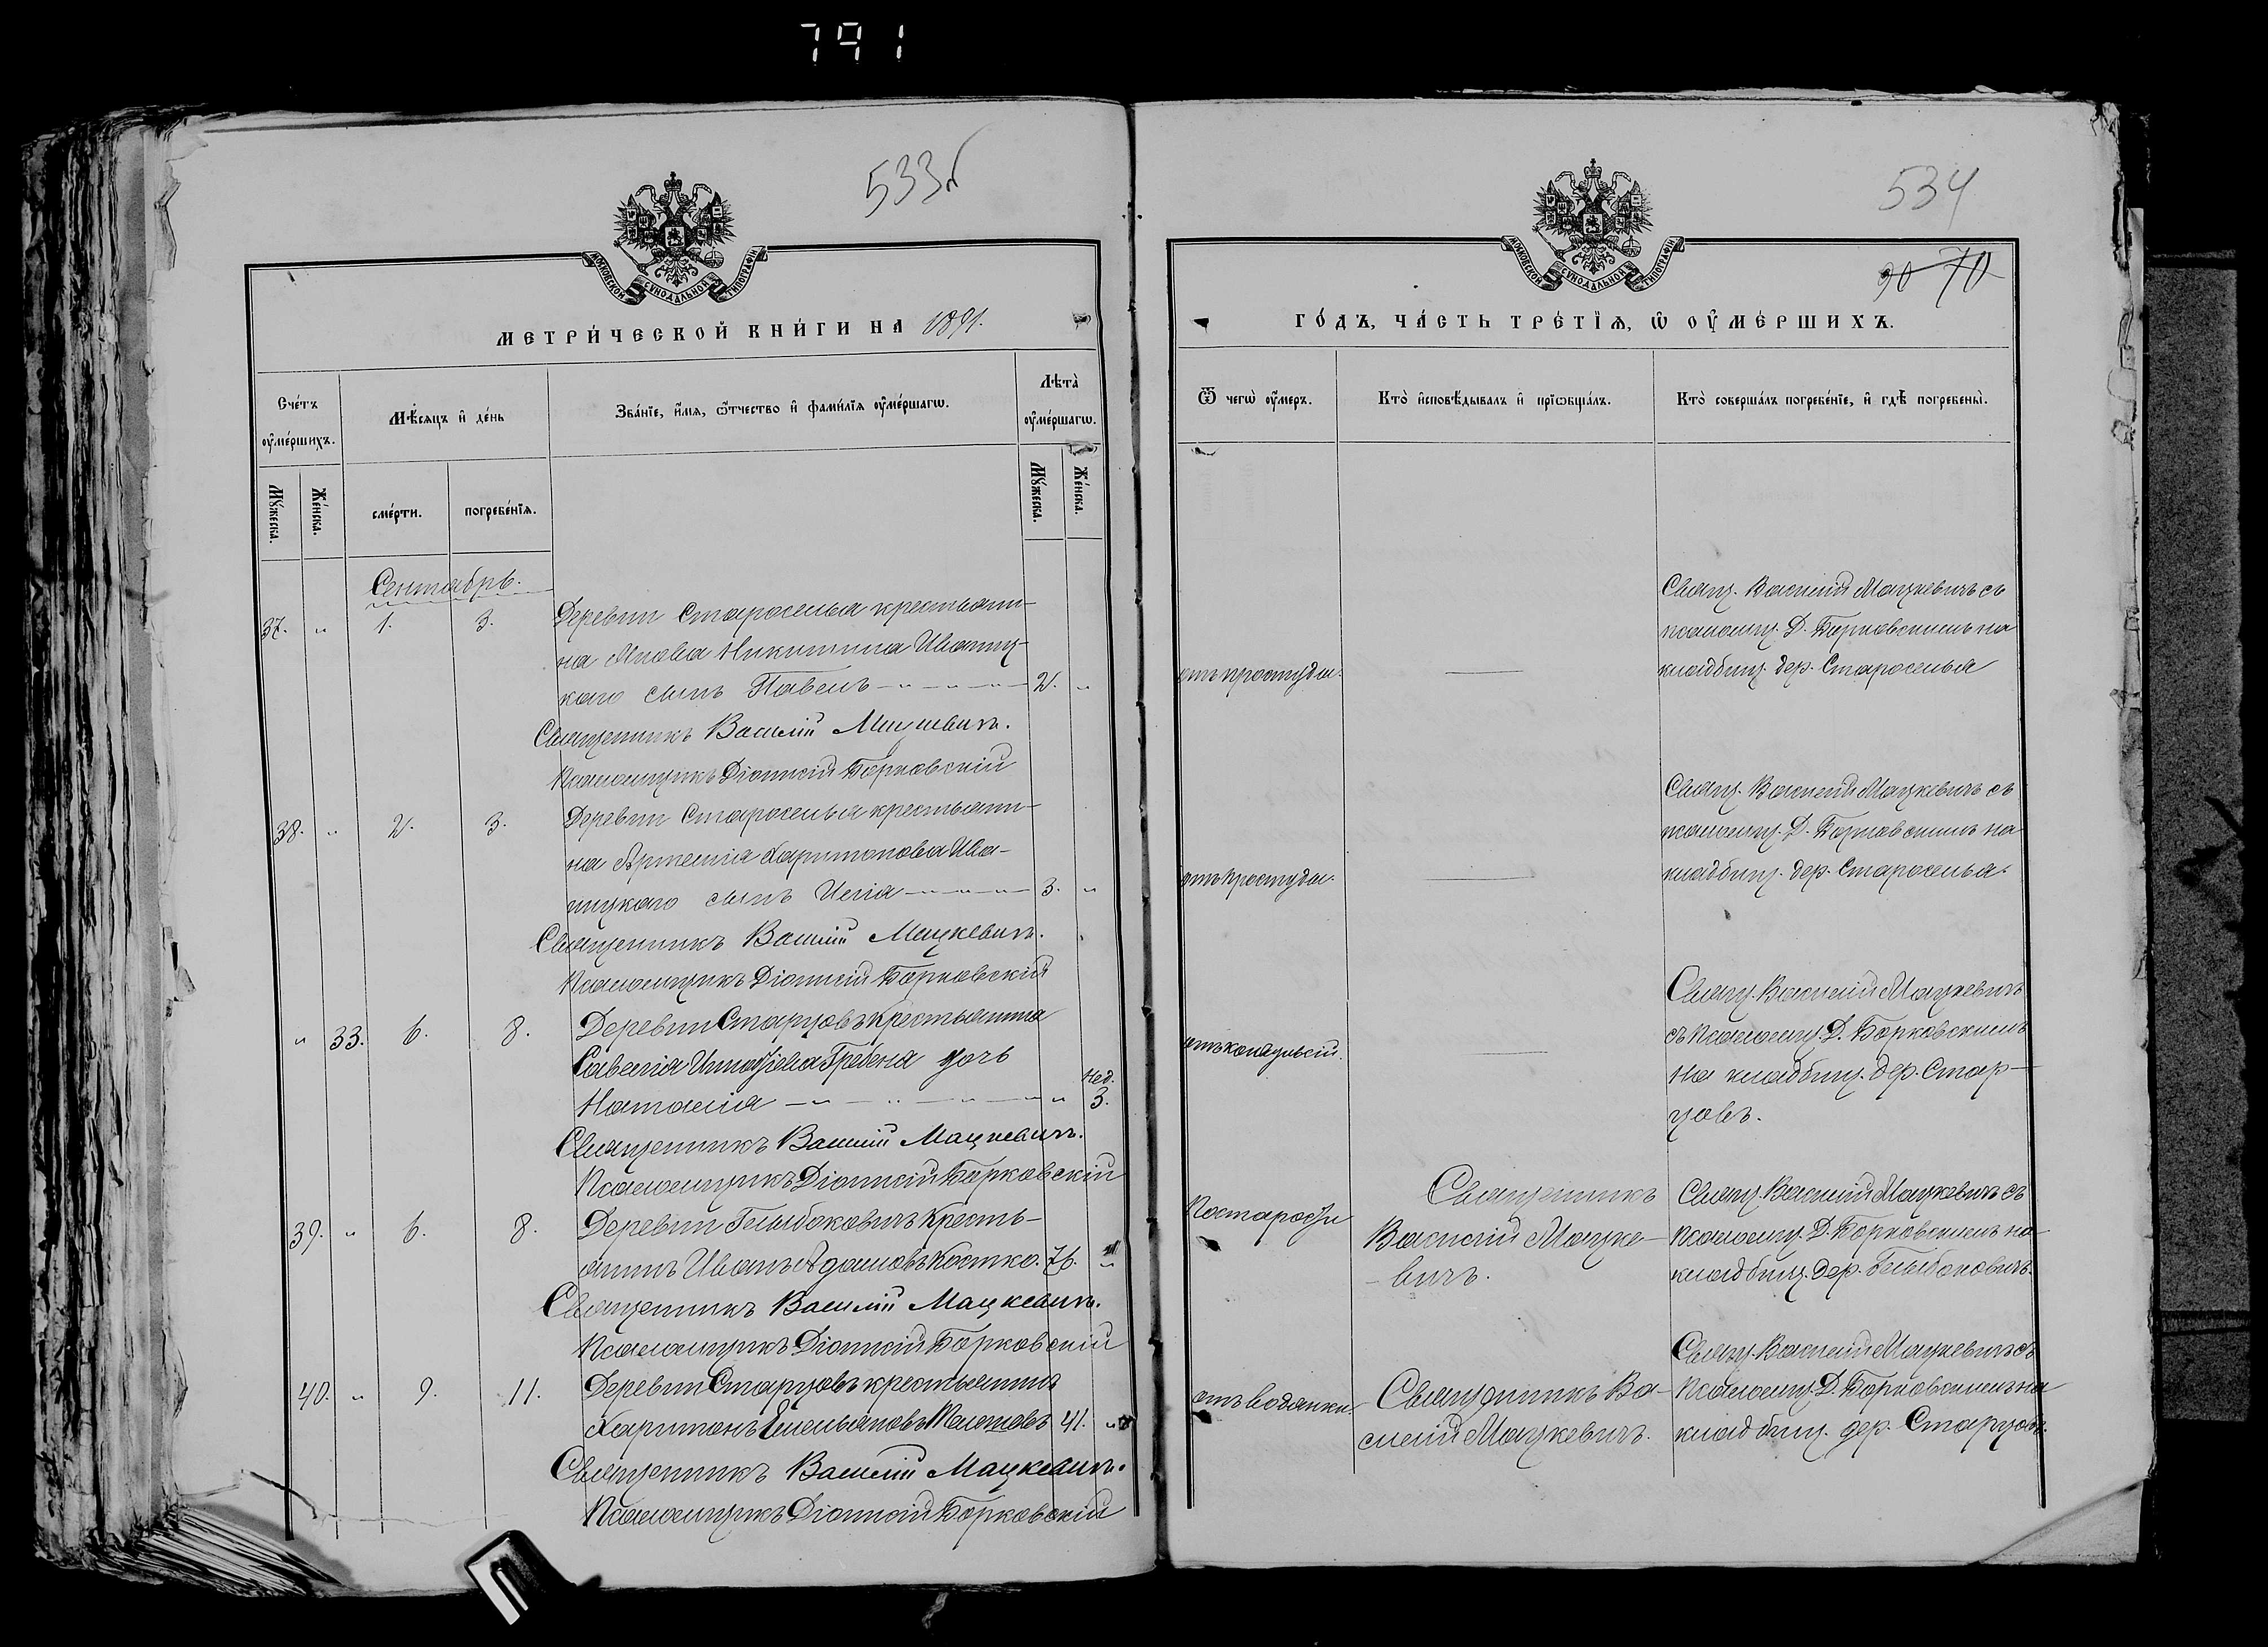 791
533б
МОСКОВСКОЙ СУНОДАЛЬНОЙ ТИПОГРАФІИ
МЕТРИ́ЧЕСКОЙ КНИ́ГИ НА 1891.
Сче́тъ оу҆ме́ршихъ.
Мѣ́сяцъ и҆ де́нь
Зва́нїе, и҆́мѧ, ѻ҆́тчество и҆ фами́лїѧ оу҆ме́ршагѡ.
Лѣта̀ оу҆ме́ршагѡ.
Мꙋ́жеска.
Же́нска.
сме́рти.
погребе́нїѧ.
Мꙋ́жеска.
Же́нска.
Сентябрь.
37. „ 1. 3. Деревни Староселья крестьяни-
на Якова Никитина Иваниц-
каго сынъ Павелъ — „ — „ — „ — 2. „
Священникъ Василій Мацкевичъ.
Псаломщикъ Діонисій Борковскій
38. „ 2. 3. Деревни Староселья крестьяни-
на Артемія Харитонова Ива-
ницкаго сынъ Илія — „ — „ — „ — 3. „
Священникъ Василій Мацкевичъ.
Псаломщикъ Діонисій Борковскій
„ 33. 6. 8. Деревни Старцовъ крестьянина
Савелія Гребеня дочь
Наталія — „ — „ — „ — „ нед. 3.
Священникъ Василій Мацкевичъ.
Псаломщикъ Діонисій Борковскій
39. „ 6. 8. Деревни Глыбоковичъ кресть-
янинъ Иванъ Адамовъ Костко. 76. „
Священникъ Василій Мацкевичъ.
Псаломщикъ Діонисій Борковскій
40. „ 9. 11. Деревни Старцовъ крестьянинъ
Харитонъ Емельяновъ 41. „
Священникъ Василій Мацкевичъ.
Псаломщикъ Діонисій Борковскій
534
МОСКОВСКОЙ СУНОДАЛЬНОЙ ТИПОГРАФІИ
90 70
ГО́ДЪ, ЧА́СТЬ ТРЕ́ТЇѦ, Ѡ҆ ОУ҆МЕ́РШИХЪ.
Ѿ чегѡ̀ оу҆́меръ.
Кто̀ и҆сповѣ́дывалъ и҆ прїѡбща́лъ.
Кто̀ соверша́лъ погребе́нїе, и҆ гдѣ̀ погребены̀.
Свящ. Василій Мацкевичъ съ
псаломщ. Д. Борковскимъ на
отъ простуды. —— кладбищ. дер. Староселья
Свящ. Василій Мацкевичъ съ
псаломщ. Д. Борковскимъ на
отъ простуды. —— кладбищ. дер. Староселья.
Свящ. Василій Мацкевичъ
съ псаломщ. Д. Борковскимъ
отъ конвульсій. —— на кладбищ. дер. Стар-
цовъ.
По старости Священникъ Свящ. Василій Мацкевичъ съ
Василій Мацке- псаломщ. Д. Борковскимъ на
-вичъ. кладбищ. дер. Глыбоковичъ.
Свящ. Василій Мацкевичъ съ
отъ водянки. Священникъ Ва- псаломщ. Д. Борковскимъ на
силій Мацкевичъ. кладбищ. дер. Старцовъ.